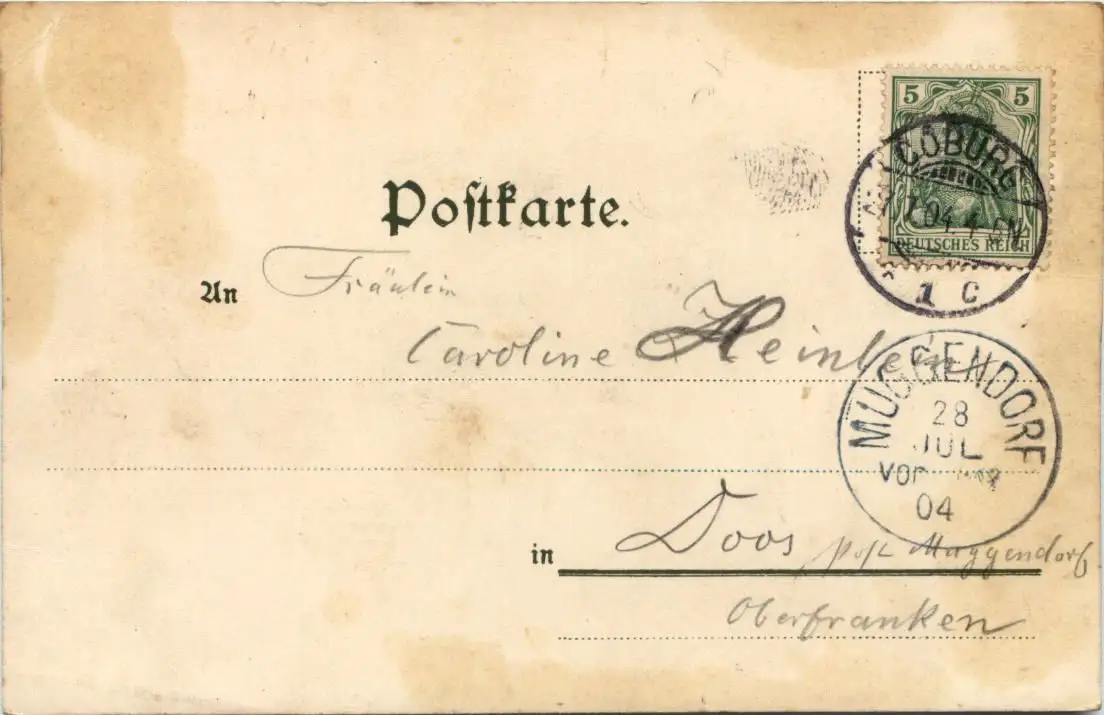 5 5
COBURG
27.7.04.4-5N
DEUTSCHES REICH
1 C
Postkarte.
An Fräulein
Caroline Heinlein
MUGGENDORF
28
JUL
VOR
04
in Doos post Muggendorf
Oberfranken